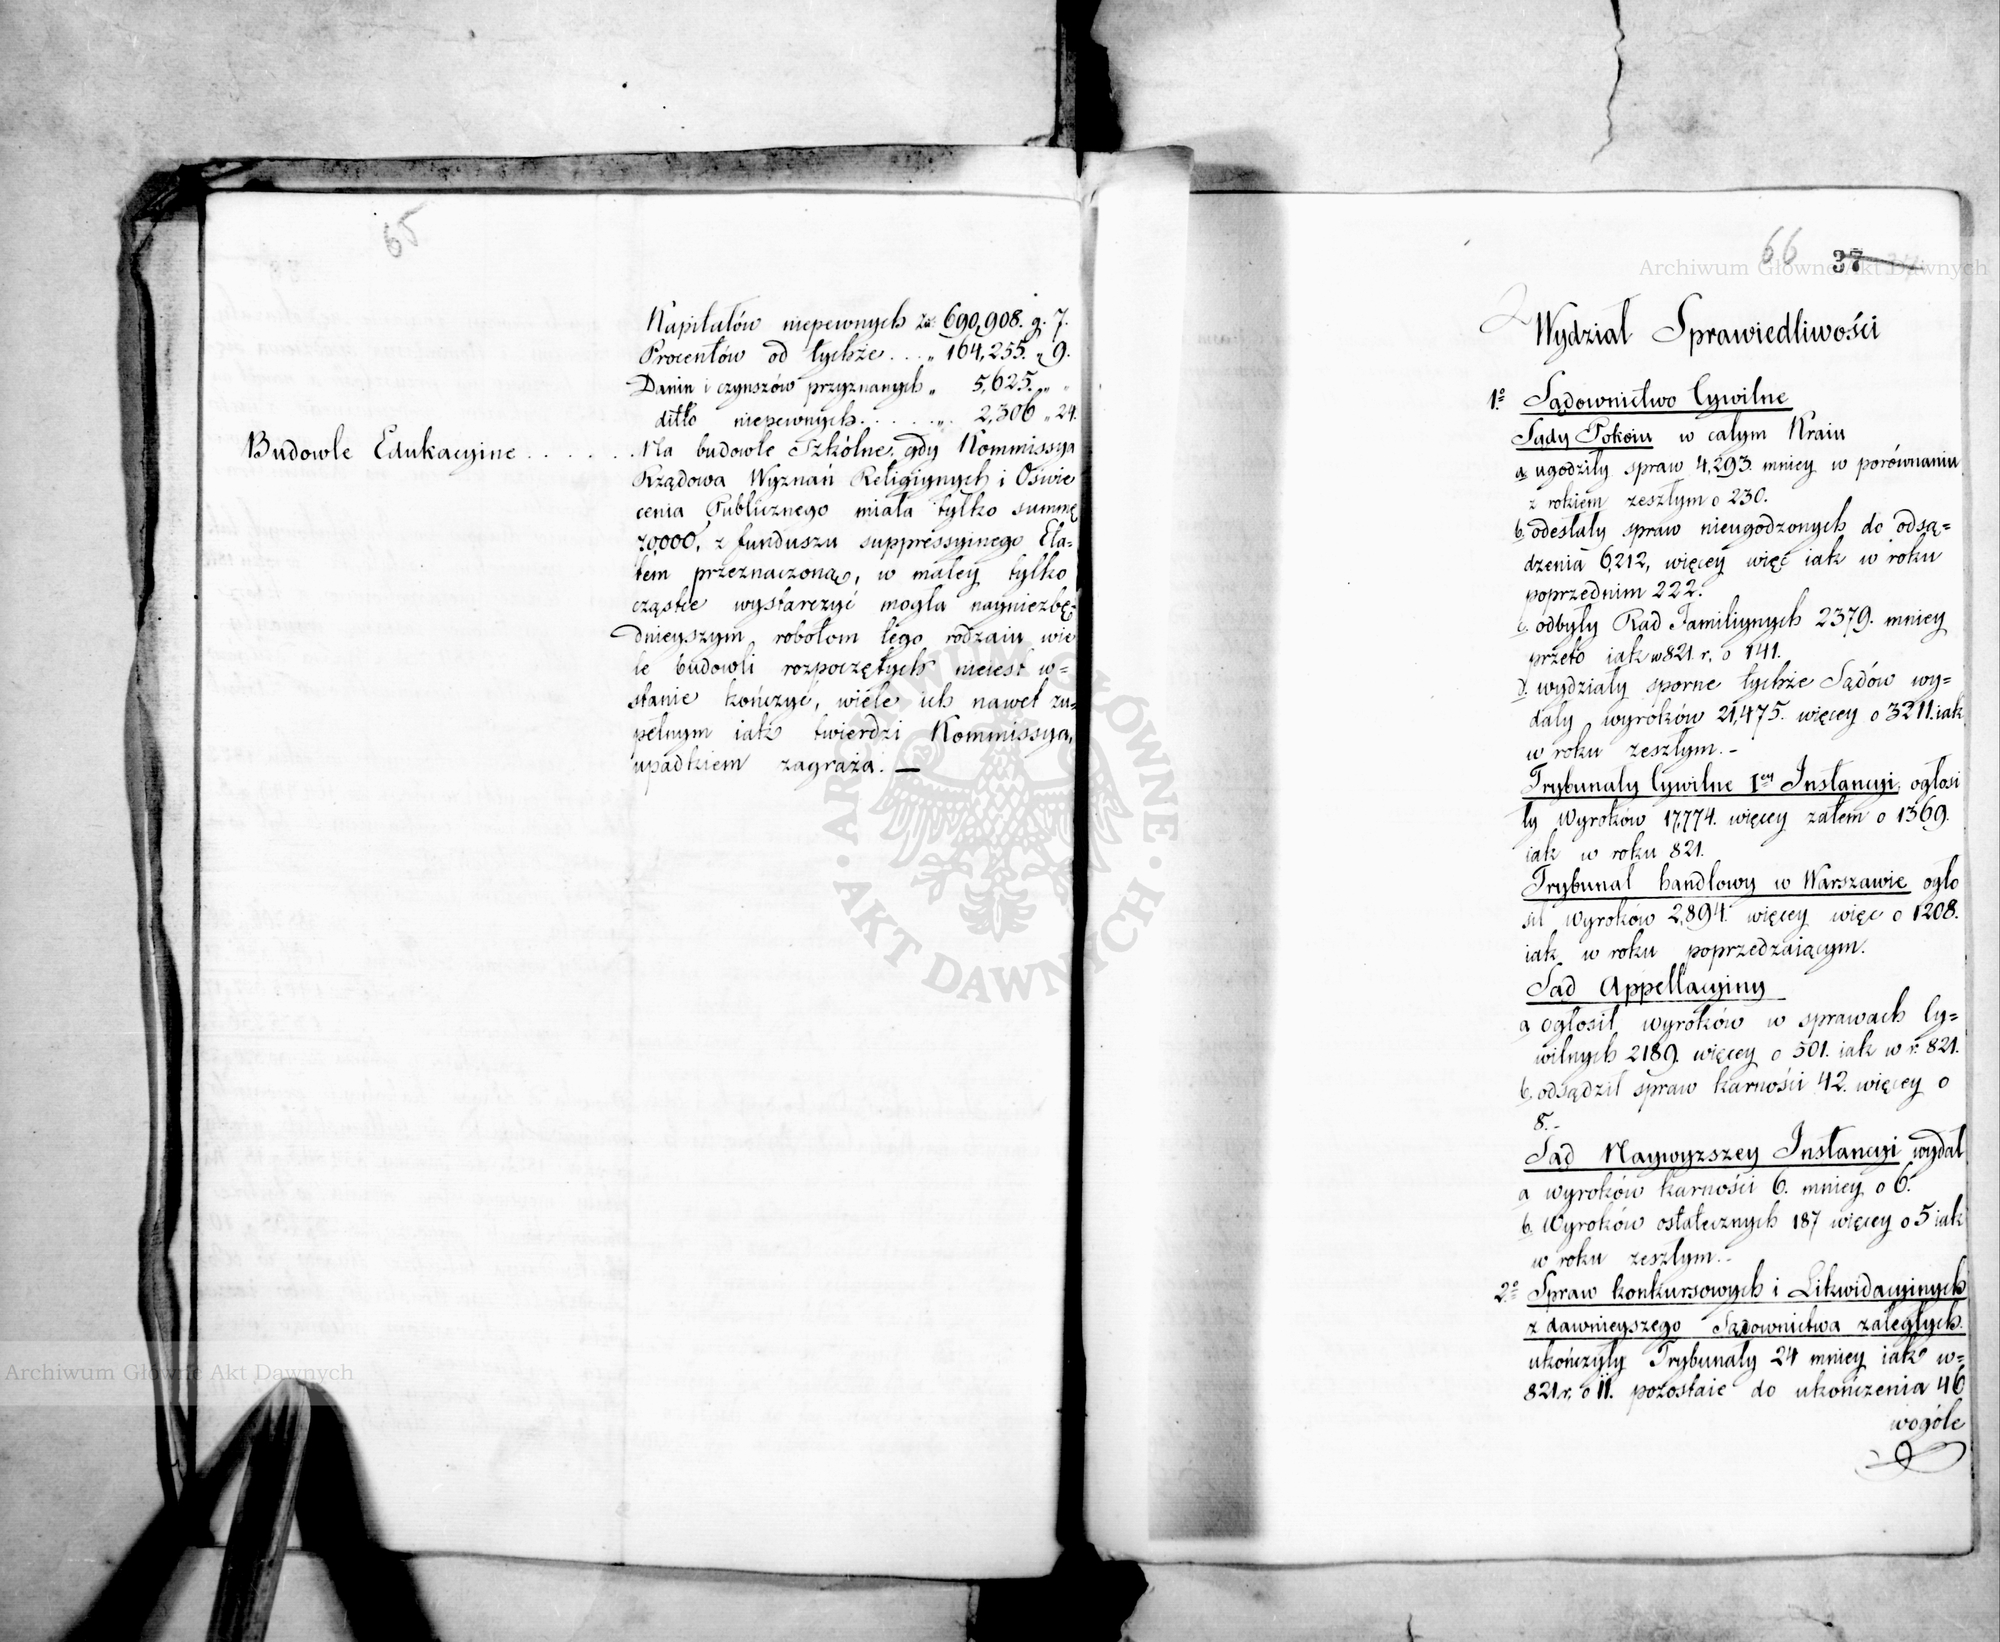 65
Kapitałów niepewnych zł: 690,908. g. 7.
Procentów od tychże . . . „ 164,255. „ 9.
Danin i czynszów przyznanych „ 5,625. „ „
ditto niepewnych . . . . . „ 2,306 „ 24.
Budowle Edukacyine . . . . . . Na budowle Szkólne, gdy Kommissya
Rządowa Wyznań Religiynych i Oświe
cenia Publicznego miała tylko summę
70,000, z funduszu suppressyinego Eta=
tem przeznaczoną, w małey tylko
cząstce wystarczyć mogła nayniezbę=
dnieyszym robotom tego rodzaiu, wie
le budowli rozpoczętych nieiest w=
stanie kończyć, wiele ich nawet zu=
pełnym iak twierdzi Kommissya,
upadkiem zagraża. —
66 37
Wydział Sprawiedliwości
1º Sądownictwo Cywilne
Sądy Pokoiu w całym Kraiu
a. ugodziły spraw 4,293. mniey w porównaniu
z rokiem zeszłym o 230.
b. odesłały spraw nieugodzonych do odsą=
dzenia 6,212, więcey więc iak w roku
poprzednim 222.
c. odbyły Rad Familiynych 2379. mniey
przeto iak w 821 r. o 141.
d. wydziały sporne tychże Sądów wy=
dały wyroków 21,475. więcey o 3211. iak
w roku zeszłym. -
Trybunały Cywilne Iey Instancyi, ogłosi
ły Wyroków 17,774. więcey zatem o 1369.
iak w roku 821.
Trybunał handlowy w Warszawie ogło
sił Wyroków 2,894. więcey więc o 1208.
iak w roku poprzedzaiącym.
Sąd Appellacyiny
a ogłosił wyroków w sprawach Cy=
wilnych 2189. więcey o 501. iak w r. 821.
b. odsądził spraw karności 42. więcey o
8. -
Sąd Naywyzszey Instancyi wydał
a wyroków karności 6. mniey o 6.
b. Wyroków ostatecznych 187 więcey o 5 iak
w roku zeszłym. -
2º Spraw konkursowych i Likwidacyinych
z dawnieyszego Sądownictwa zaległych
ukończyły Trybunały 24 mniey iak w=
821 r. o 11. pozostaie do ukończenia 46
wogóle
Archiwum Główne Akt Dawnych
Archiwum Główne Akt Dawnych
ARCHIWUM GŁÓWNE · AKT DAWNYCH ·